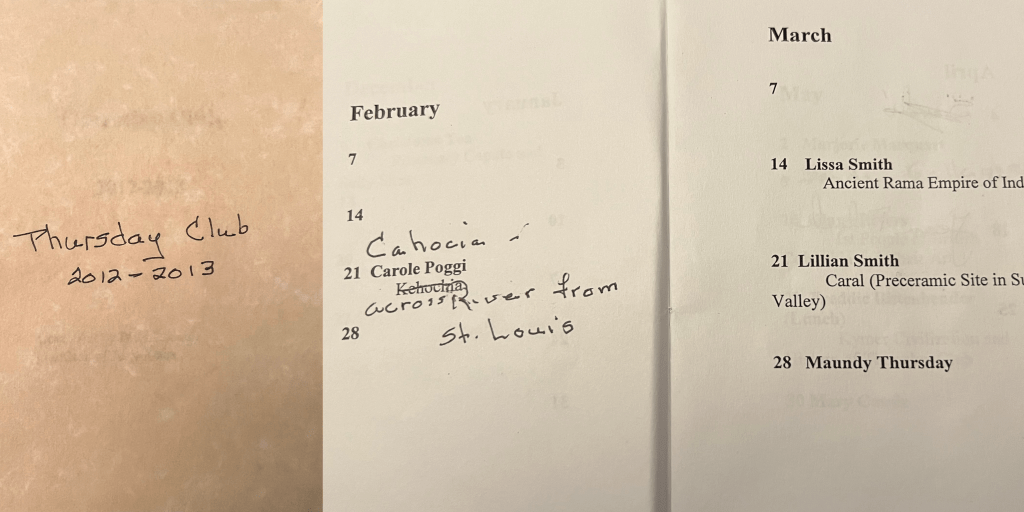 Thursday Club
2012-2013
February
7
14
Cahocia -
21 Carole Poggi
Kehochia
across River from
28
St. Louis
March
7
14 Lissa Smith
Ancient Rama Empire of Ind
21 Lillian Smith
Caral (Preceramic Site in Su
Valley)
28 Maundy Thursday